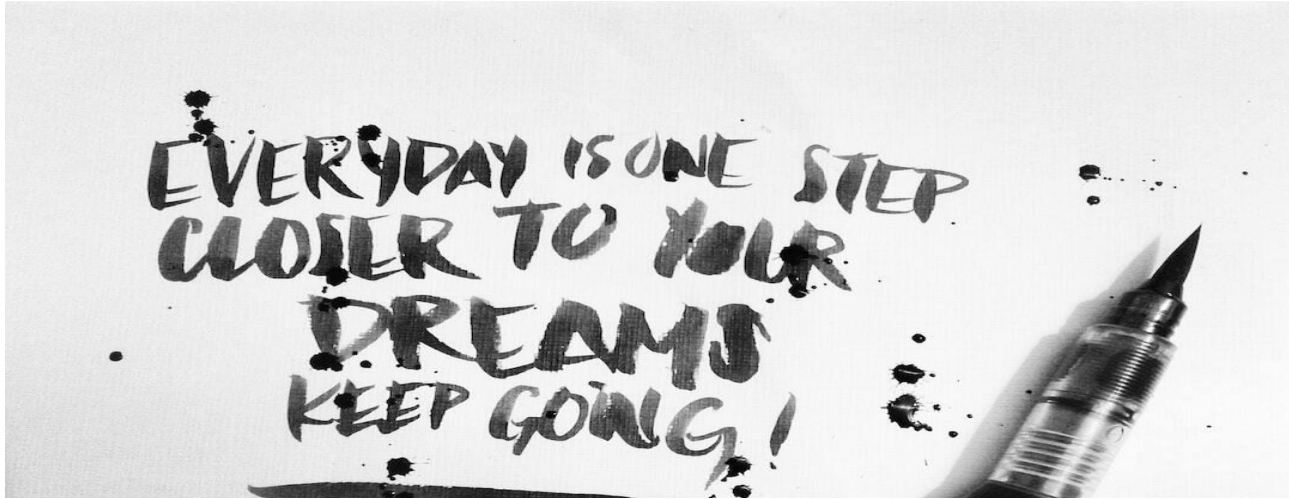 EVERYDAY IS ONE STEP
CLOSER TO YOUR
DREAMS
KEEP GOING!